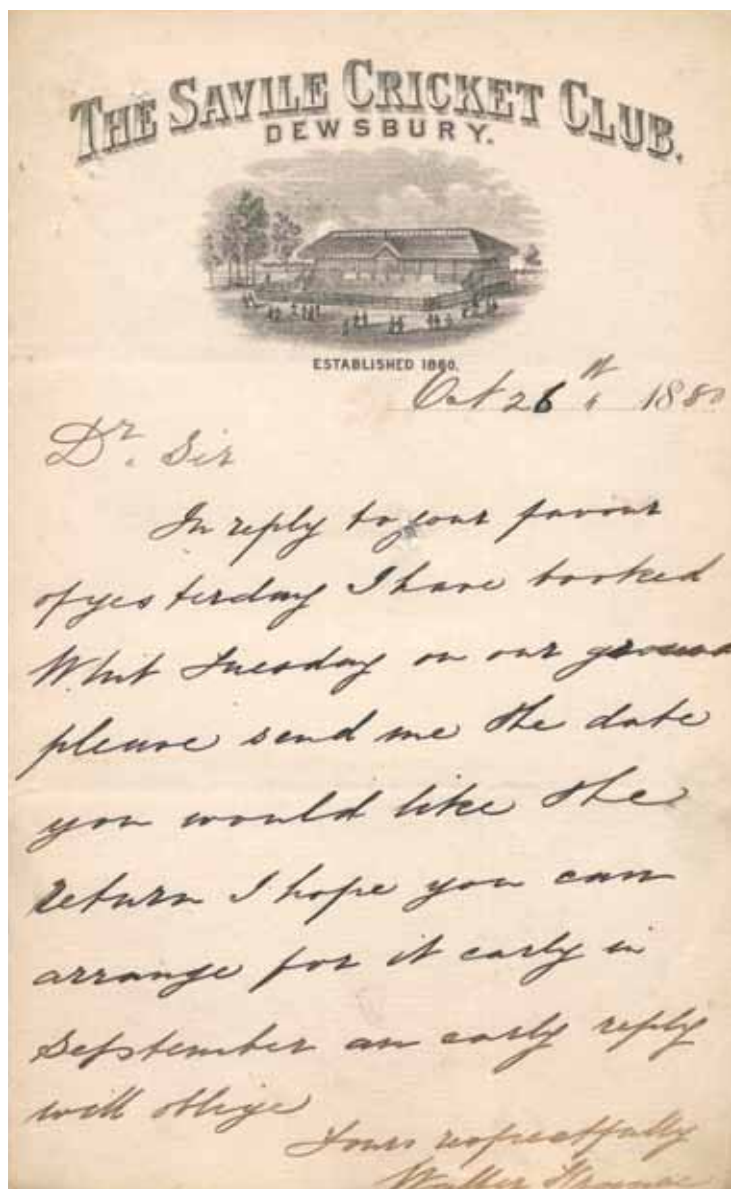 THE SAVILE CRICKET CLUB.
DEWSBURY.
ESTABLISHED 1880.
Oct 26th 1880
Dr. Sir
In reply to your favour
of yesterday I have booked
Whit Tuesday on our ground
please send me the date
you would like the
return I hope you can
arrange for it early in
September an early reply
will oblige
Yours respectfully
Walter